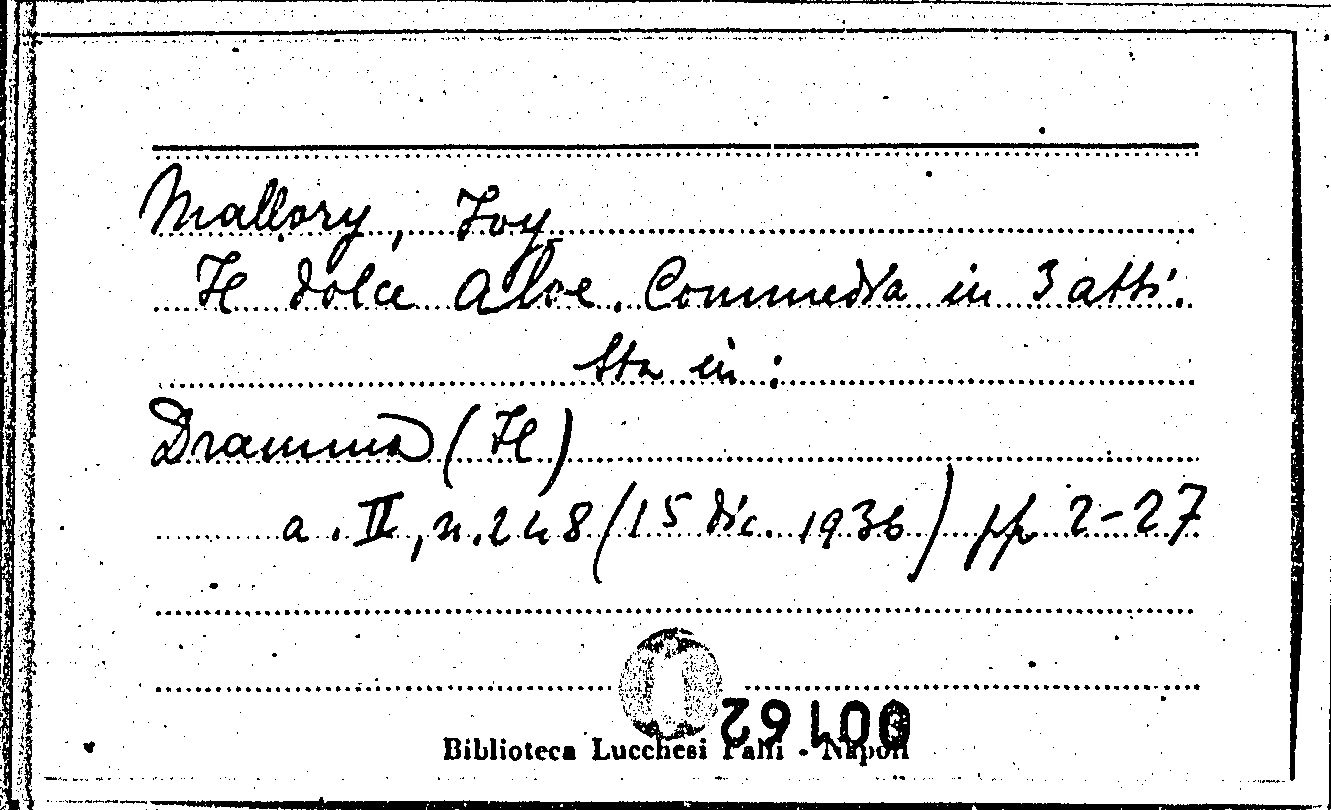 Mallory, Joy
Il dolce aloe. Commedia in 3 atti.
Sta in:
Dramma (Il)
a. II, n. 248 (15 dic. 1936) pp 2-27
00162
Biblioteca Lucchesi Palli - Napoli